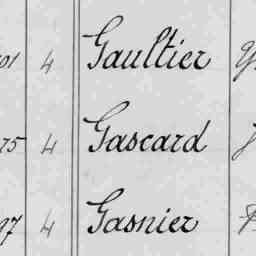 01 4 Gaultier
75 4 Gascard
97 4 Gasnier